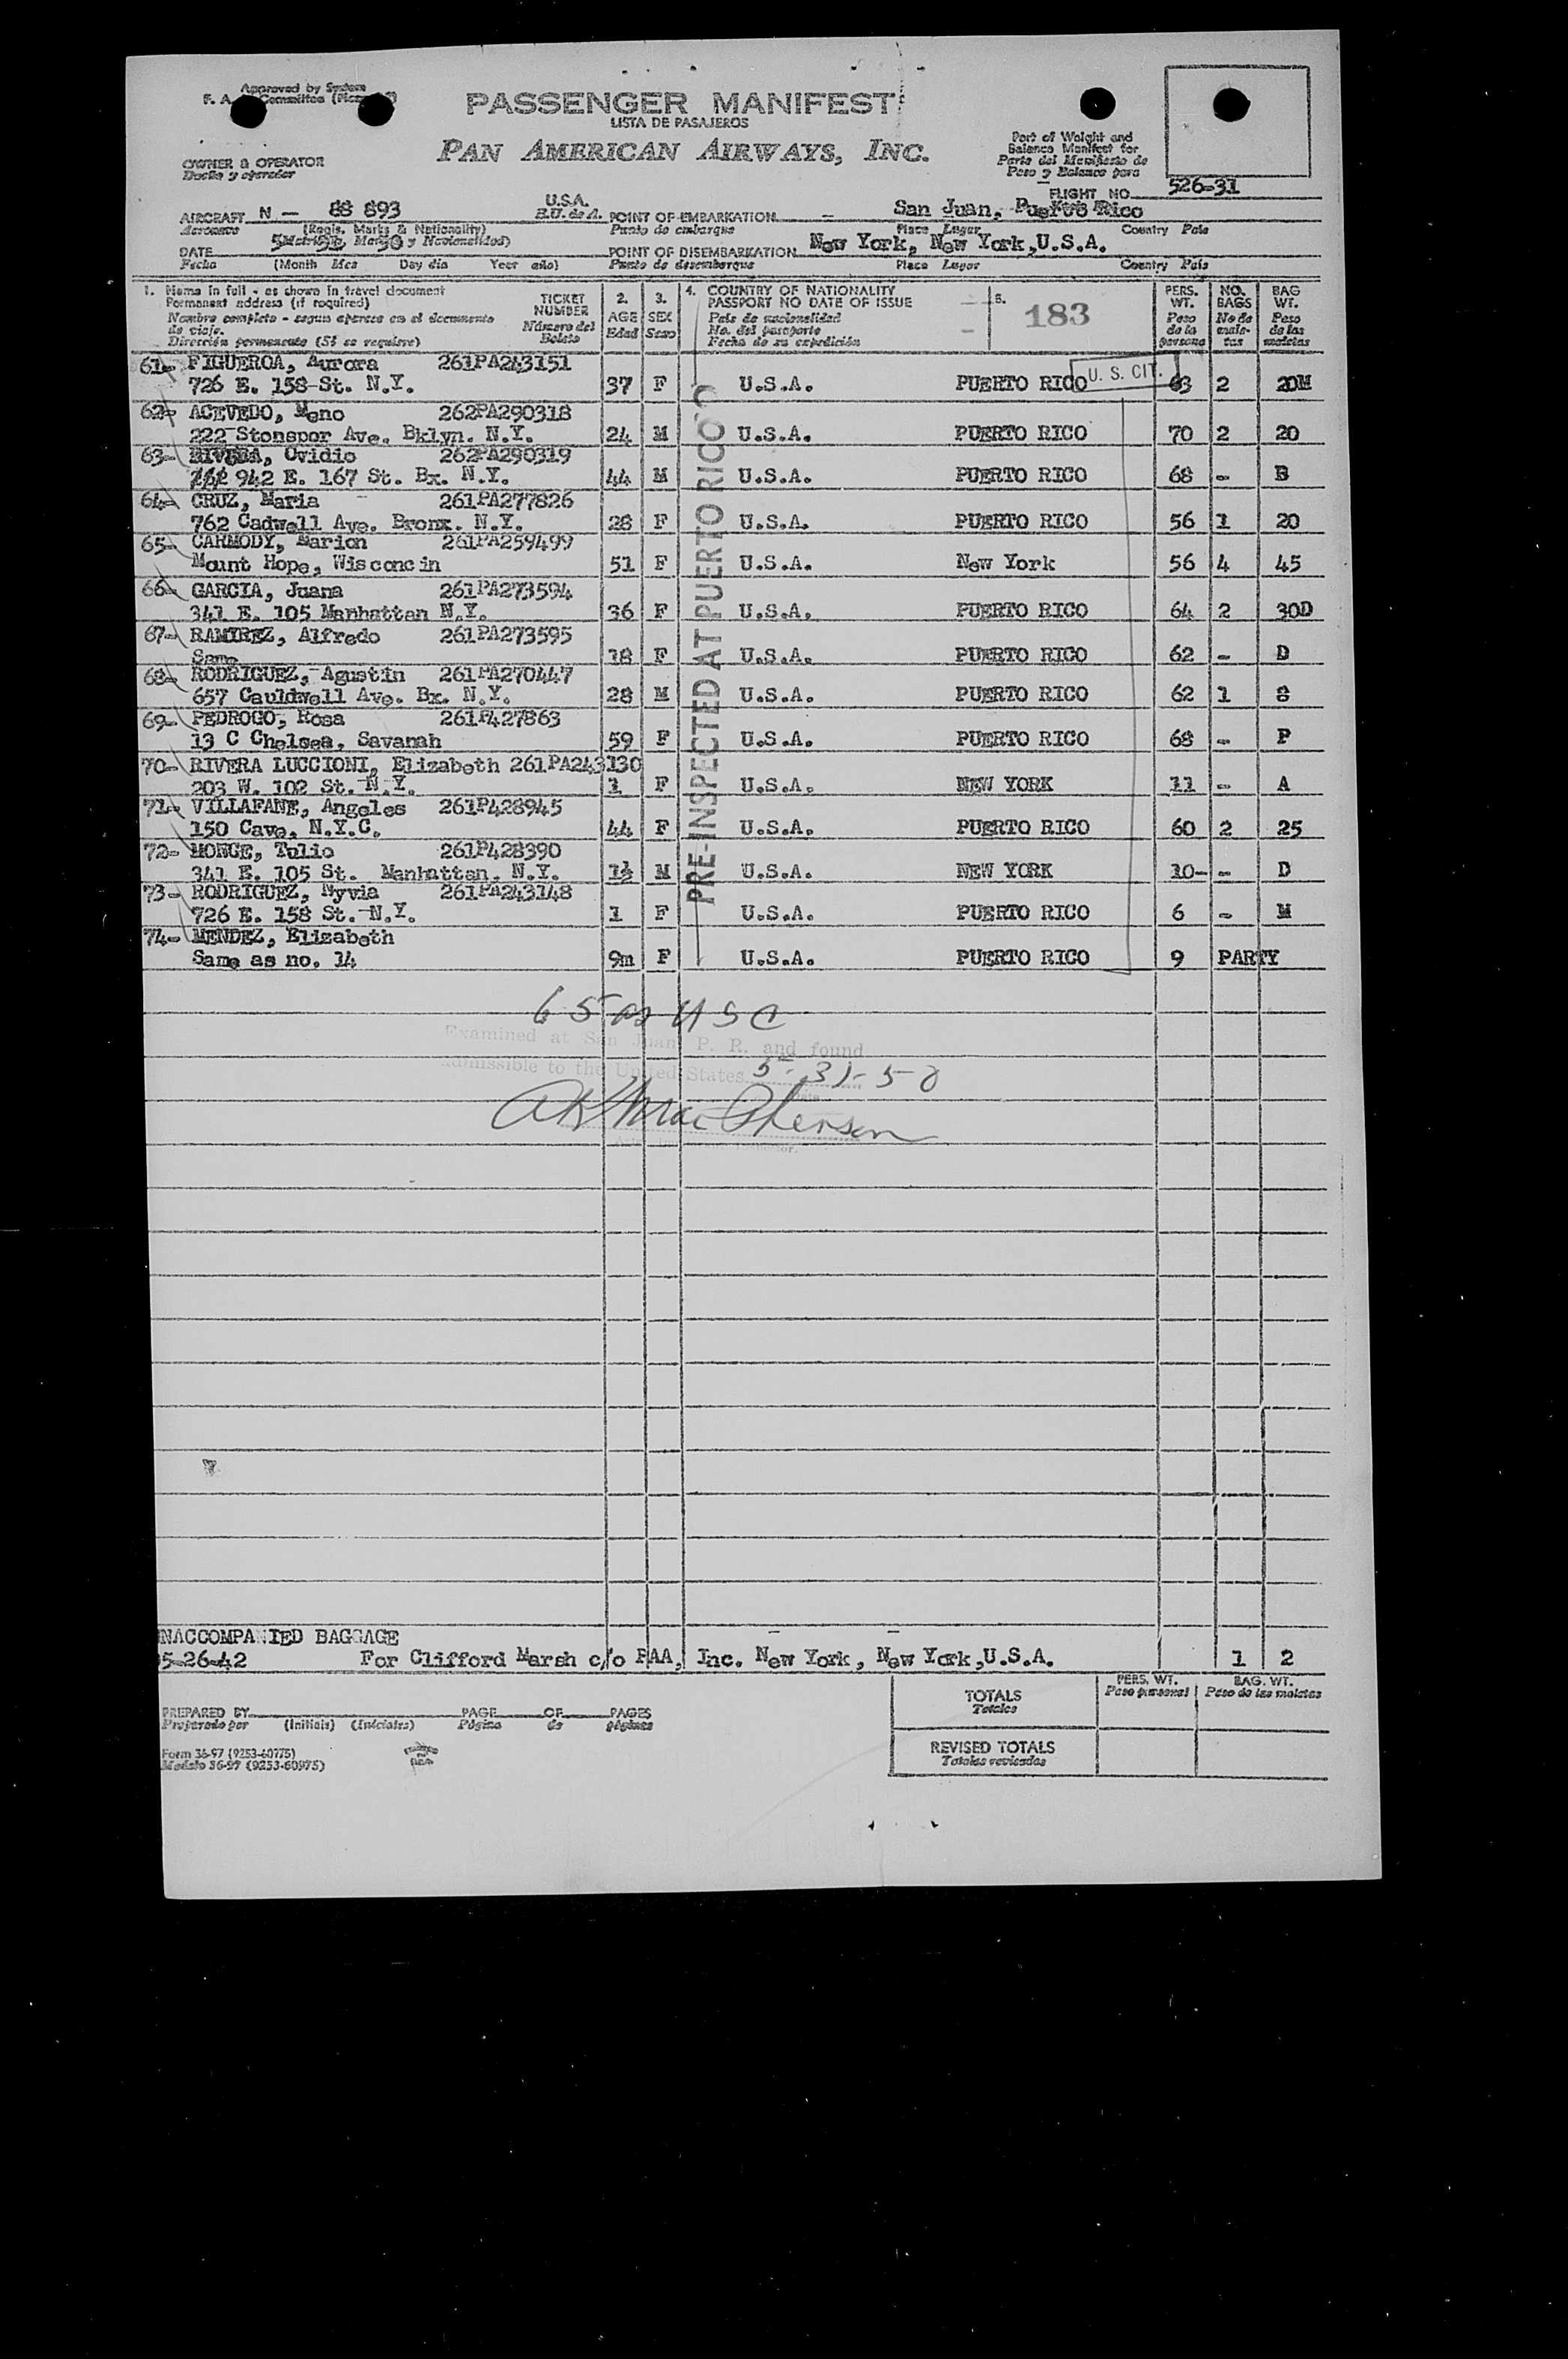 Approved by System
F. A. Committee
PASSENGER MANIFEST
LISTA DE PASAJEROS
PAN AMERICAN AIRWAYS, INC.
OWNER & OPERATOR
Dueño y operador
Part of Weight and
Balance Manifest for
Parte del Manifiesto de
Peso y Balance para
FLIGHT NO. 526-31
AIRCRAFT N - 88 893 U.S.A.
Aeronave (Regis. Marks & Nationality) E.U. de A.
POINT OF EMBARKATION San Juan, Puerto Rico
Punto de embarque Place Lugar Country País
DATE
Fecha (Month Mes Day día Year año)
POINT OF DISEMBARKATION New York, New York, U.S.A.
Punto de desembarque Place Lugar Country País
1. Name in full - as shown in travel document
Permanent address (if required)
Nombre completo - segun aparece en el documento
de viaje.
Dirección permanente (Si se requiere)
TICKET
NUMBER
Número del
Boleto
2.
AGE
Edad
3.
SEX
Sexo
4. COUNTRY OF NATIONALITY
PASSPORT NO DATE OF ISSUE
País de nacionalidad
No. del pasaporte
Fecha de su expedición
5.
183
PERS.
WT.
Peso
de la
persona
NO.
BAGS
No de
male-
tas
BAG
WT.
Peso
de las
maletas
U. S. CIT.
PRE-INSPECTED AT PUERTO RICO
61- FIGUEROA, Aurora 261PA243151
726 E. 158 St. N.Y. 37 F U.S.A. PUERTO RICO 63 2 20M
62- ACEVEDO, Meno 262PA290318
222 Stonspor Ave. Bklyn. N.Y. 24 M U.S.A. PUERTO RICO 70 2 20
63- RIVERA, Ovidio 262PA290319
942 E. 167 St. Bx. N.Y. 44 M U.S.A. PUERTO RICO 68 - B
64- CRUZ, Maria 261PA277826
762 Cadwell Ave. Bronx. N.Y. 28 F U.S.A. PUERTO RICO 56 1 20
65- CARMODY, Marion 261PA259499
Mount Hope, Wisconcin 51 F U.S.A. New York 56 4 45
66- GARCIA, Juana 261PA273594
341 E. 105 Manhattan N.Y. 36 F U.S.A. PUERTO RICO 64 2 30D
67- RAMIREZ, Alfredo 261PA273595
Same 18 F U.S.A. PUERTO RICO 62 - D
68- RODRIGUEZ, Agustin 261PA270447
657 Cauldwell Ave. Bx. N.Y. 28 M U.S.A. PUERTO RICO 62 1 8
69- PEDROGO, Rosa 261P427863
13 C Chelsea, Savanah 59 F U.S.A. PUERTO RICO 68 - P
70- RIVERA LUCCIONI, Elizabeth 261PA243130
203 W. 102 St. N.Y. 1 F U.S.A. NEW YORK 11 - A
71- VILLAFANE, Angeles 261P428945
150 Cave. N.Y.C. 44 F U.S.A. PUERTO RICO 60 2 25
72- MONGE, Tulio 261P428390
341 E. 105 St. Manhattan. N.Y. 1½ M U.S.A. NEW YORK 10- - D
73- RODRIGUEZ, Nyvia 261PA243148
726 E. 158 St. N.Y. 1 F U.S.A. PUERTO RICO 6 - M
74- MENDEZ, Elizabeth
Same as no. 14 9m F U.S.A. PUERTO RICO 9 PARTY
65 as USC
Examined at San Juan, P. R. and found
admissible to the United States 5-31-50
NACCOMPANIED BAGGAGE
5-26-42 For Clifford Marsh c/o PAA, Inc. New York, New York, U.S.A. 1 2
PREPARED BY PAGE OF PAGES
Preparado por (Initials) (Iniciales) Página de páginas
TOTALS
Totales
PERS. WT.
Peso personal
BAG. WT.
Peso de las maletas
REVISED TOTALS
Totales revisados
Form 36-97 (9253-60775)
Modelo 36-97 (9253-60975)